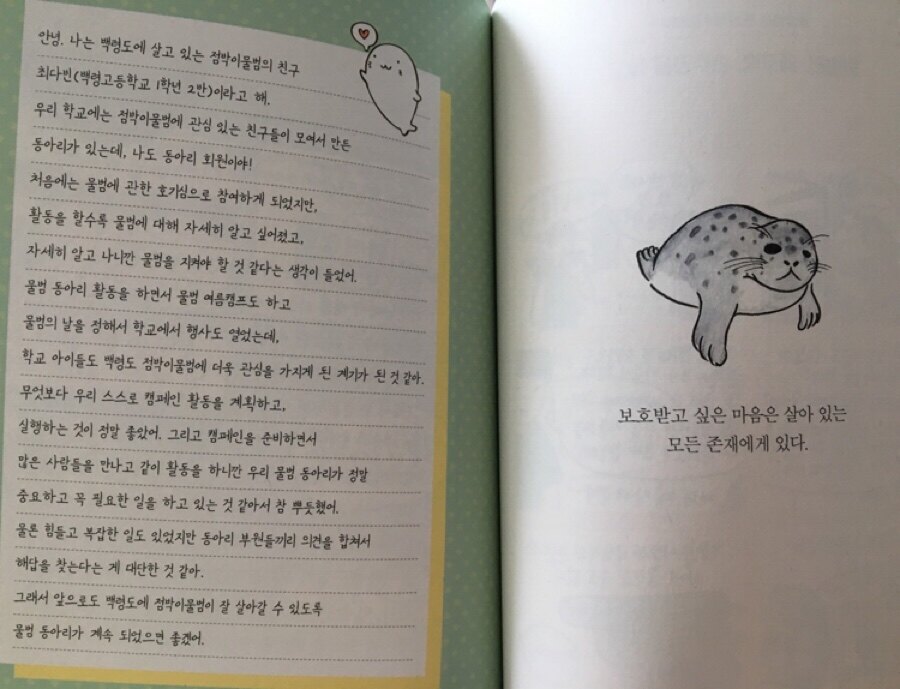 안녕. 나는 백령도에 살고 있는 점박이물범의 친구
최다빈(백령고등학교 1학년 2반)이라고 해.
우리 학교에는 점박이물범에 관심 있는 친구들이 모여서 만든
동아리가 있는데, 나도 동아리 회원이야!
처음에는 물범에 관한 호기심으로 참여하게 되었지만,
활동을 할수록 물범에 대해 자세히 알고 싶어졌고,
자세히 알고 나니깐 물범을 지켜야 할 것 같다는 생각이 들었어.
물범 동아리 활동을 하면서 물범 여름캠프도 하고
물범의 날을 정해서 학교에서 행사도 열었는데,
학교 아이들도 백령도 점박이물범에 더욱 관심을 가지게 된 계기가 된 것 같아.
무엇보다 우리 스스로 캠페인 활동을 계획하고,
실행하는 것이 정말 좋았어. 그리고 캠페인을 준비하면서
많은 사람들을 만나고 같이 활동을 하니깐 우리 물범 동아리가 정말
중요하고 꼭 필요한 일을 하고 있는 것 같아서 참 뿌듯했어.
물론 힘들고 복잡한 일도 있었지만 동아리 부원들끼리 의견을 합쳐서
해답을 찾는다는 게 대단한 것 같아.
그래서 앞으로도 백령도에 점박이물범이 잘 살아갈 수 있도록
물범 동아리가 계속 되었으면 좋겠어.
보호받고 싶은 마음은 살아 있는
모든 존재에게 있다.